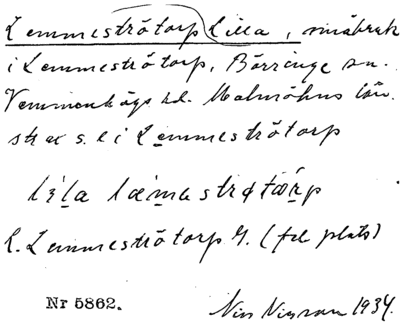 Lemmeströtorp Lilla, småbruk
i Lemmeströtorp, Börringe sn.
Vemmenhögs hd. Malmöhus län
str ax s. e i Lemmeströtorp
lila læmastrøtårp
L. Lemmeströtorp G. (fd plats)
Nr 5862.
Nils 1934.